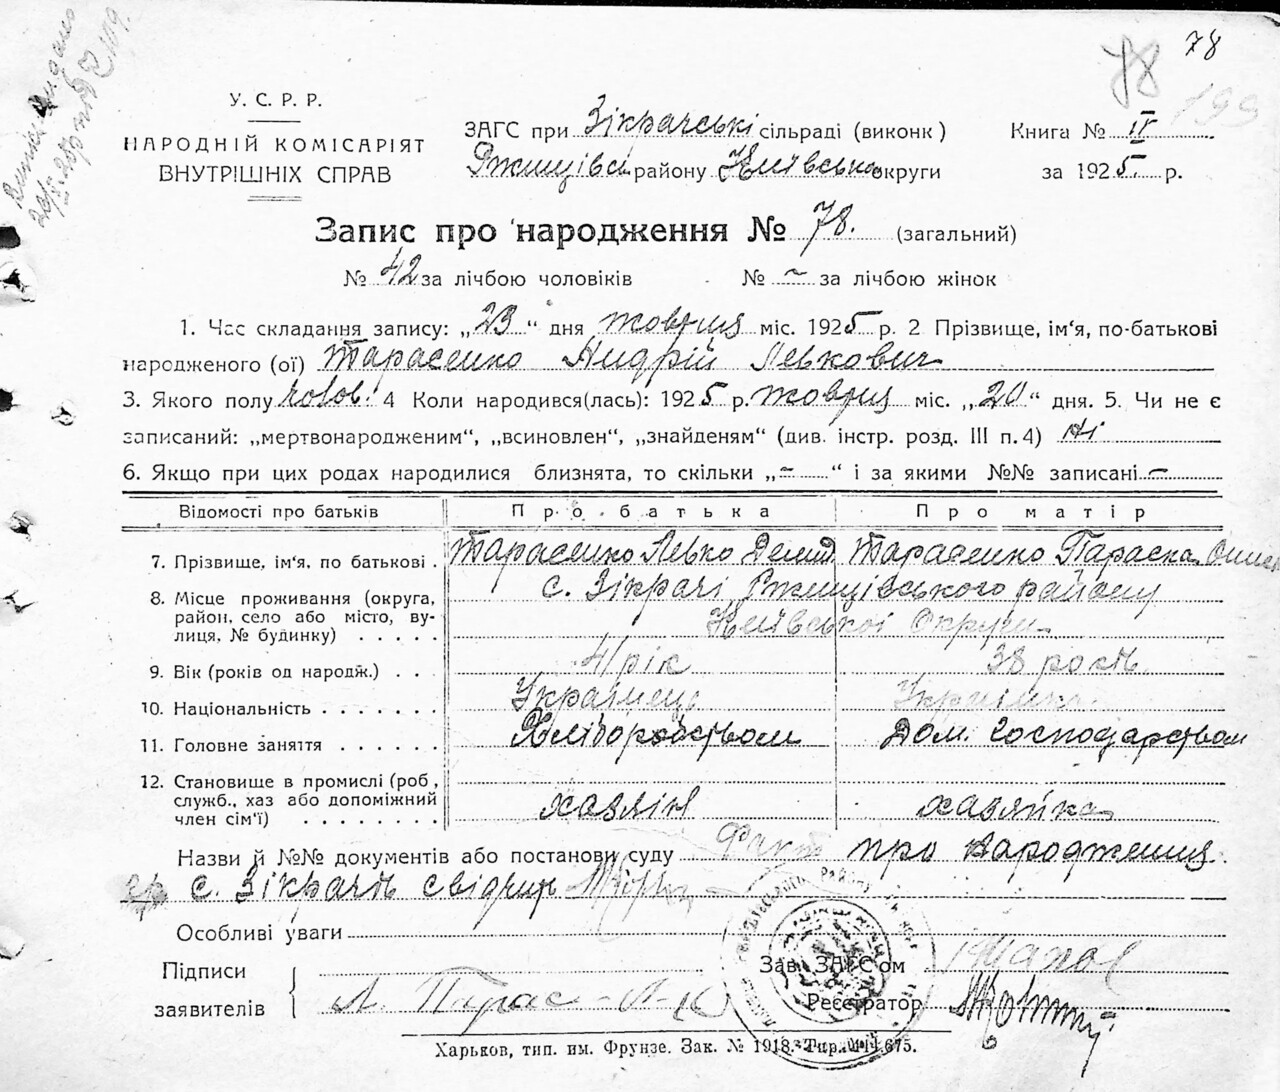 78
78
199
У. С. Р. Р.
НАРОДНІЙ КОМІСАРІЯТ
ВНУТРІШНІХ СПРАВ
ЗАГС при Зікрачські сільраді (виконк)
Ржищівськ району Київської округи
Книга № IV
за 1925 р.
Запис про народження № 78. (загальний)
№ 42 за лічбою чоловіків № – за лічбою жінок
1. Час складання запису: „23“ дня жовтня міс. 1925 р. 2 Прізвище, ім'я, по-батькові
народженого (ої) Тарасенко Андрій Левкович
3. Якого полу чолов. 4 Коли народився(лась): 1925 р. жовтня міс. „20“ дня. 5. Чи не є
записаний: „мертвонародженим“, „всиновлен“, „знайденям“ (див. інстр. розд. III п. 4) Ні
6. Якщо при цих родах народилися близнята, то скільки „–“ і за якими №№ записані –
Відомості про батьків Про батька Про матір
7. Прізвище, ім'я, по батькові . Тарасенко Левко Демид Тарасенко Параска
8. Місце проживання (округа, район, село або місто, вулиця, № будинку) . . . . . с. Зікрачі Ржищівського району
Київської Округи
9. Вік (років од народж.) . . 41 рік 38 рость
10. Національність . . . . . . . Українець Українка
11. Головне заняття . . . . . . Хліборобством Дом. Господарством
12. Становище в промислі (роб, служб., хаз або допоміжний член сім'ї) . . . . . . . . хазяїн хазяйка
Назви й №№ документів або постанови суду Факт про народження
гр с. Зікрачів свідчить
Особливі уваги
Підписи
заявителів
Л. Тарас
Зав. ЗАГС'ом
Реєстратор
Харьков, тип. им. Фрунзе. Зак. № 1918. Тир. 14.675.